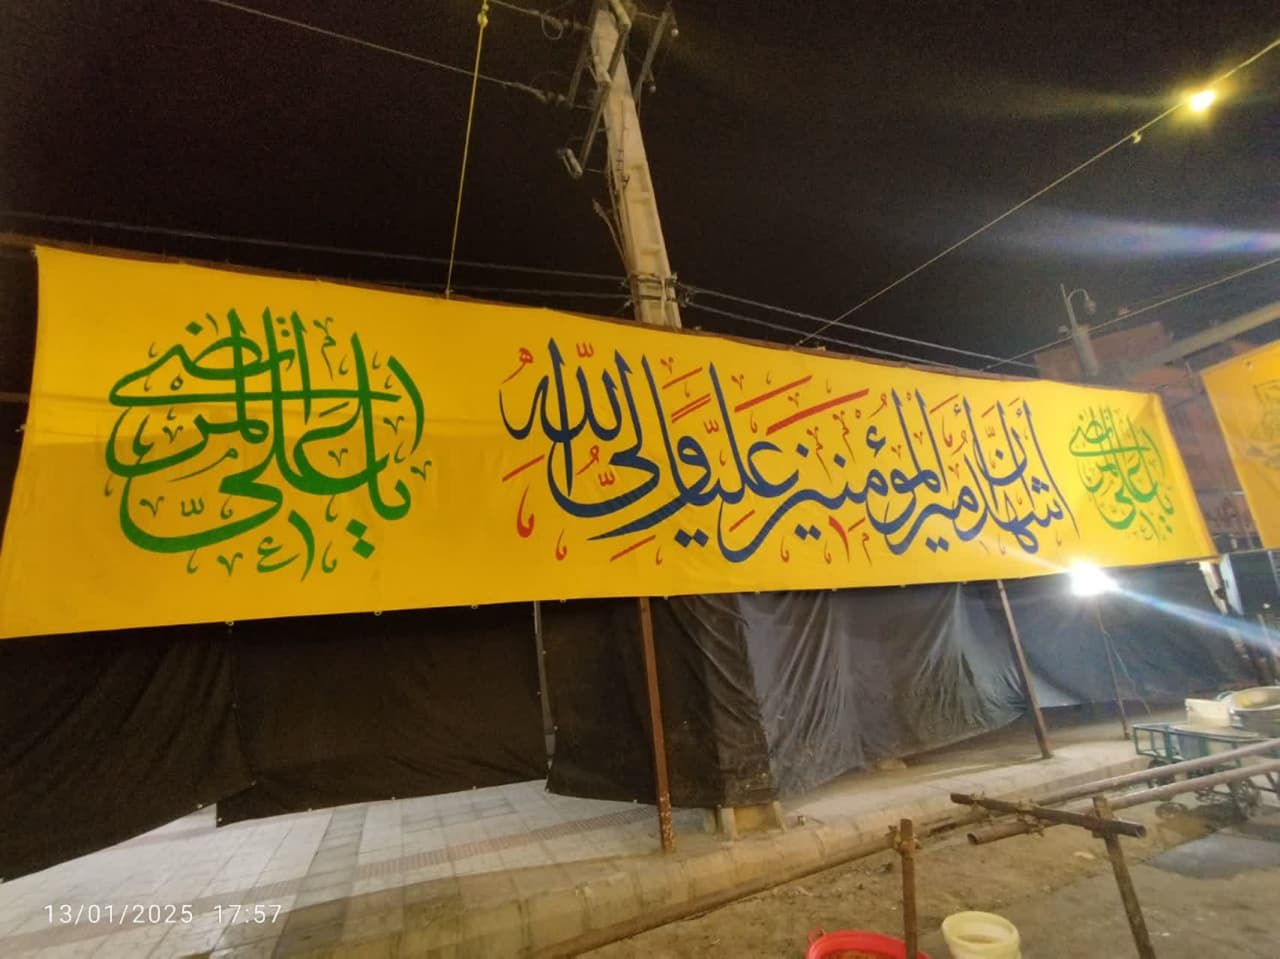 یا علی المرتضی (ع)
اشهد أن أمیر المؤمنین علیا ولی الله
یا علی المرتضی
13/01/2025 17:57